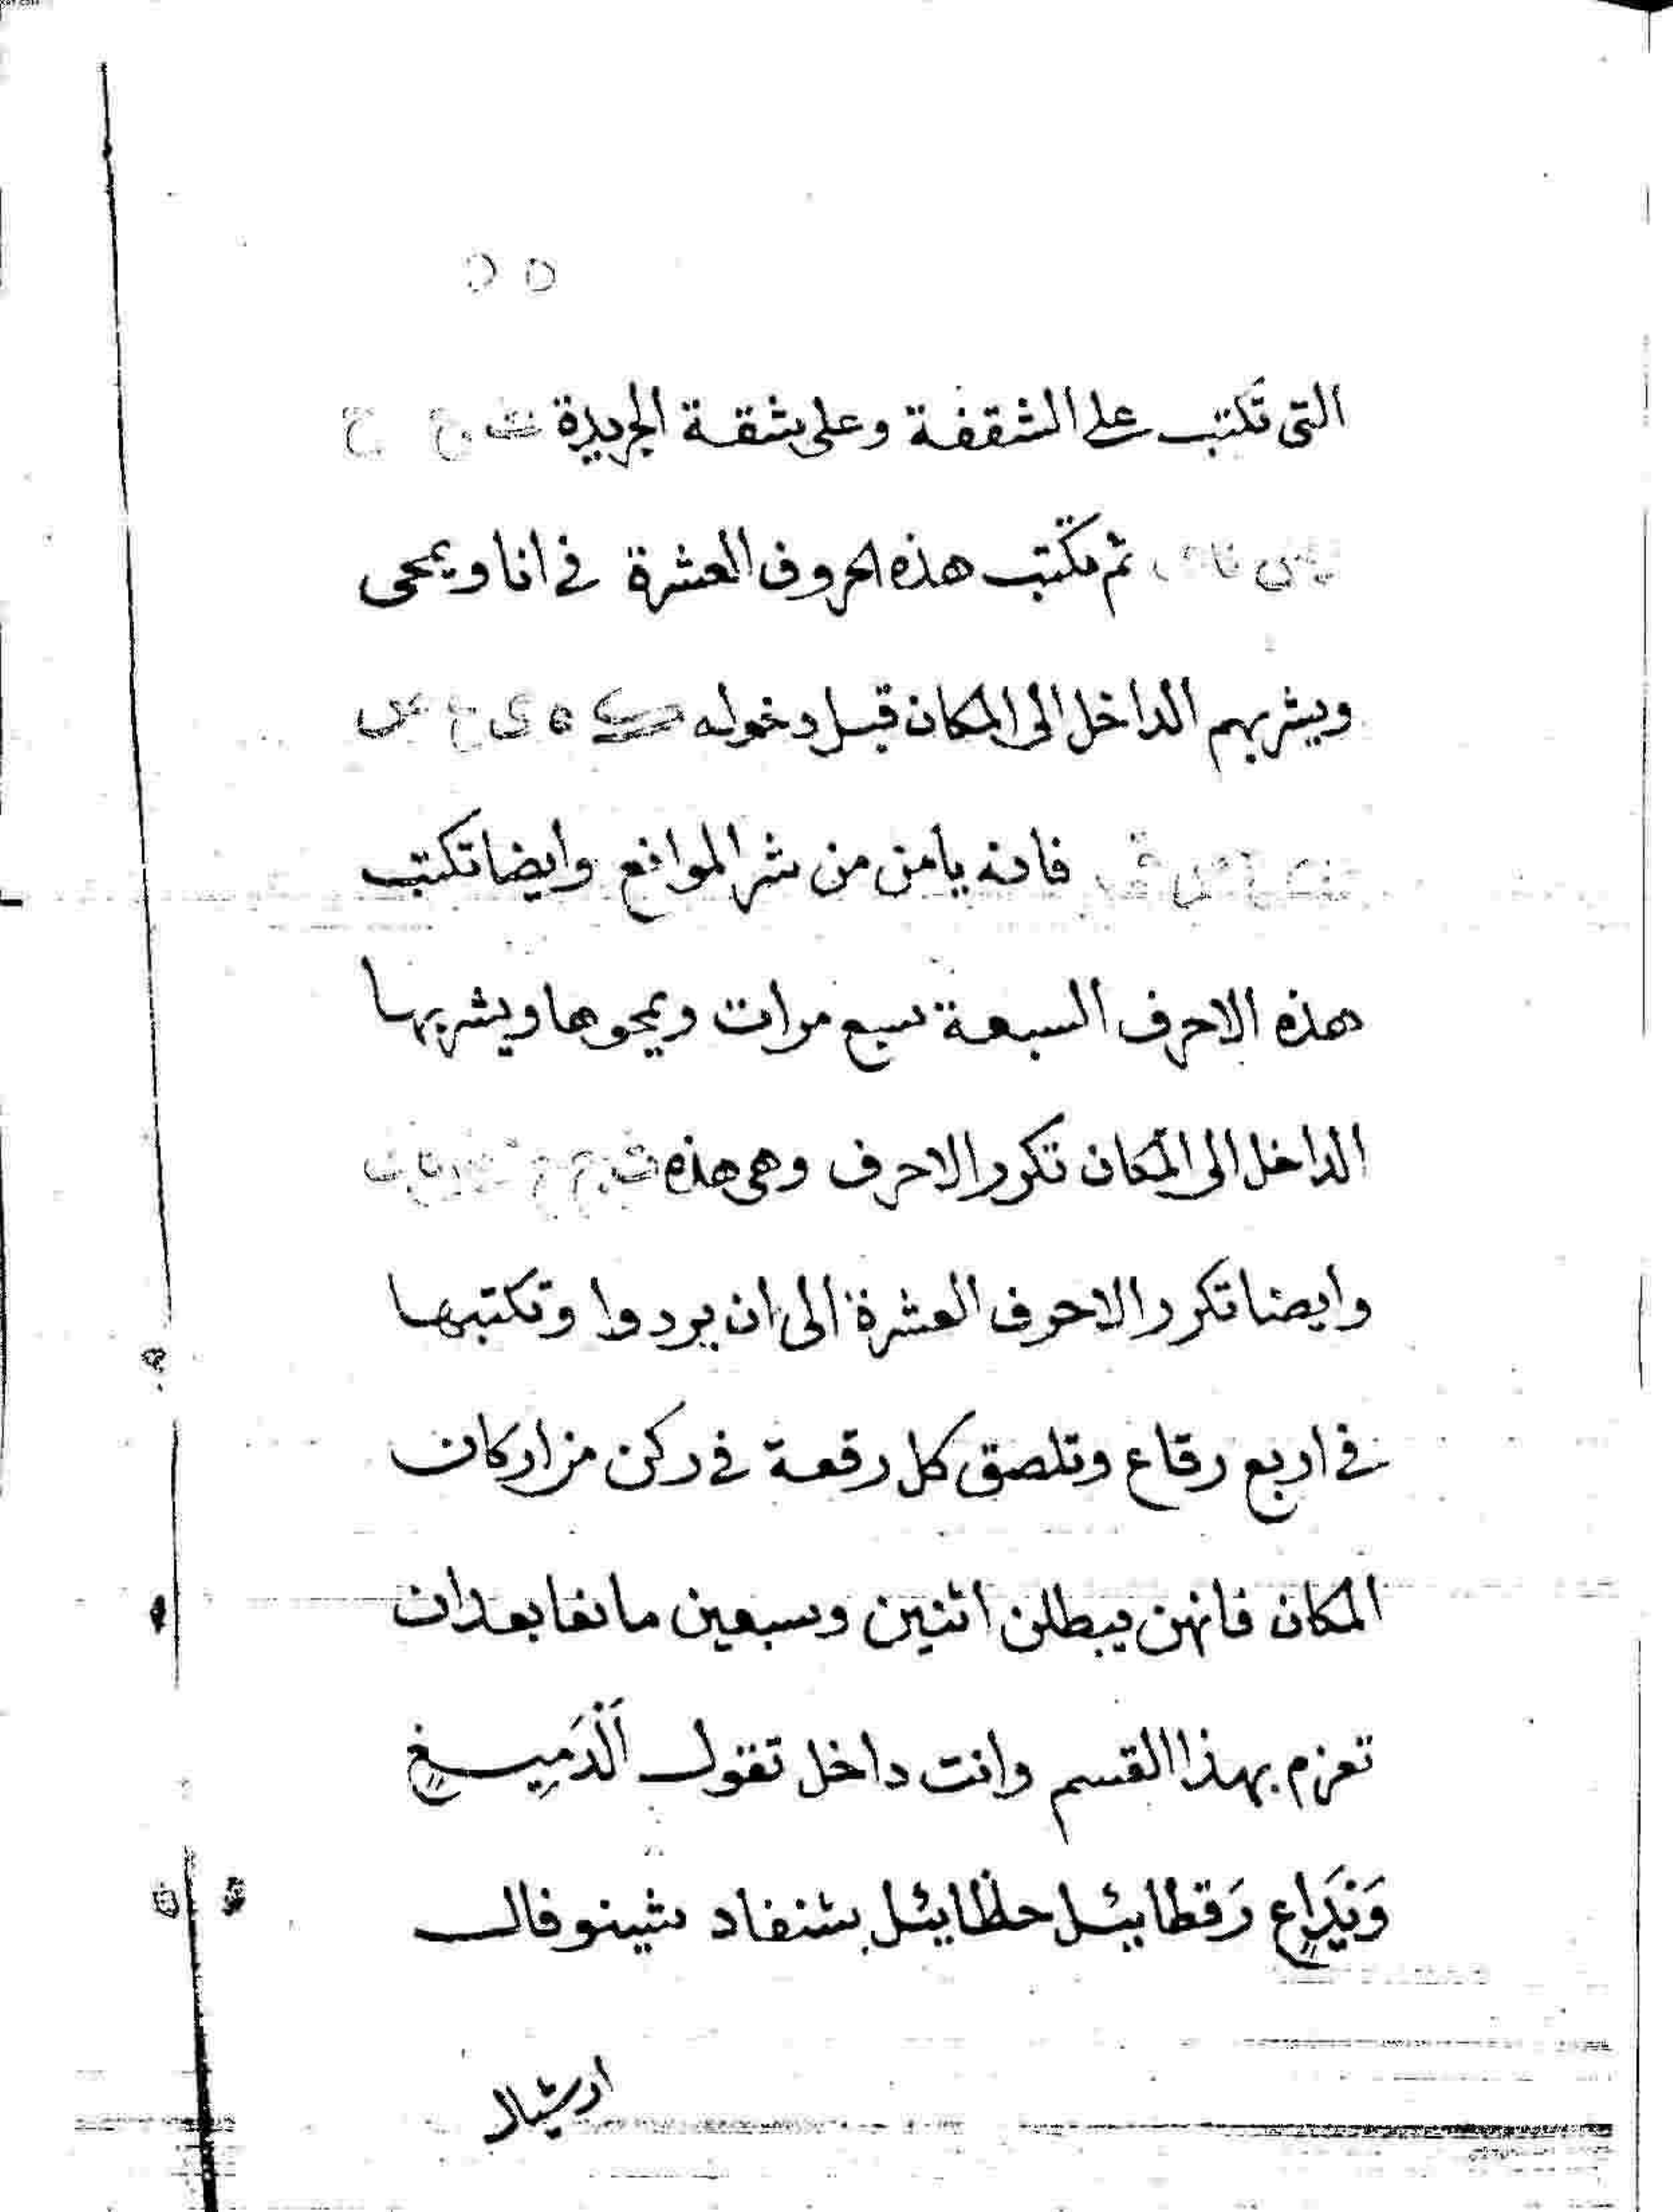 ٥٥
التى تكتب على الشقفة وعلى شقة الجريدة
ثم تكتب هذه الحروف العشرة فى انا ويمحى
ويشربهم الداخل الى المكان قبل دخوله
فانه يامن من شر الموانع وايضا تكتب
هذه الاحرف السبعة سبع مرات ويمحوها ويشربها
الداخل الى المكان تكرر الاحرف وهى هذه
وايضا تكرر الاحرف العشرة الى ان يردوا وتكتبها
فى اربع رقاع وتلصق كل رقعة فى ركن من اركان
المكان فانهن يبطلن اثنين وسبعين مانعا بعد ان
تعزم بهذا القسم وانت داخل تقول
رَقطائيل حلظائيل شنفاد شينوفال
ارشيالا